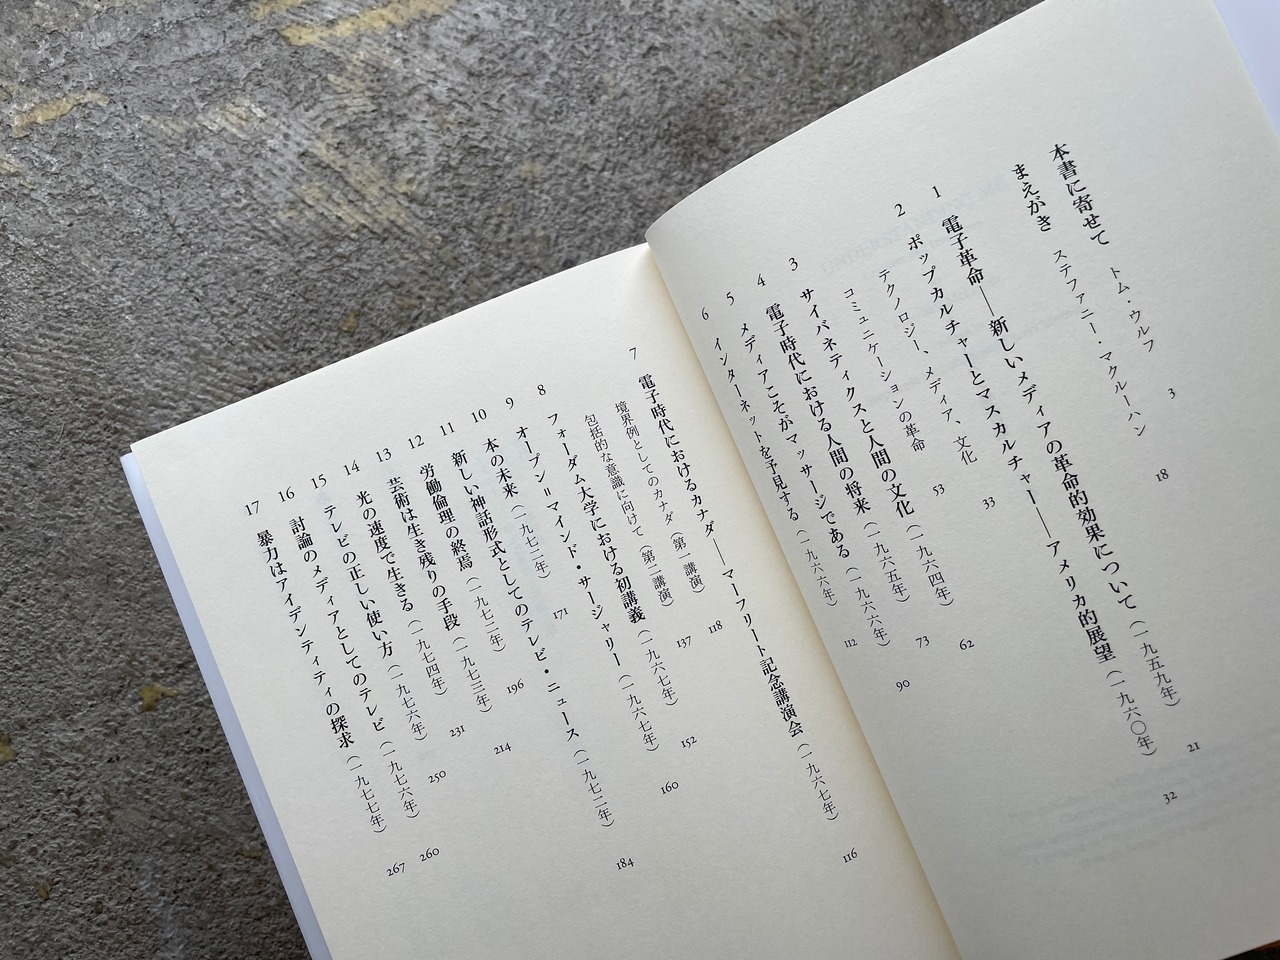 本書に寄せて トム・ウルフ 3
まえがき ステファニー・マクルーハン 18
1 電子革命——新しいメディアの革命的効果について（一九五九年） 21
2 ポップカルチャーとマスカルチャー——アメリカ的展望（一九六〇年） 32
テクノロジー、メディア、文化 33
コミュニケーションの革命 53
3 サイバネティクスと人間の文化（一九六四年） 62
4 電子時代における人間の将来（一九六五年） 73
5 メディアこそがマッサージである（一九六六年） 90
6 インターネットを予見する（一九六六年） 112
7 電子時代におけるカナダ——マーフリート記念講演会（一九六七年） 116
境界例としてのカナダ（第一講演） 118
包括的な意識に向けて（第二講演） 137
8 フォーダム大学における初講義（一九六七年） 152
9 オープン＝マインド・サージャリー（一九六七年） 160
10 本の未来（一九七二年） 171
11 新しい神話形式としてのテレビ・ニュース（一九七二年） 184
12 労働倫理の終焉（一九七二年） 196
13 芸術は生き残りの手段（一九七三年） 214
14 光の速度で生きる（一九七四年） 231
15 テレビの正しい使い方（一九七六年） 250
16 討論のメディアとしてのテレビ（一九七六年） 260
17 暴力はアイデンティティの探求（一九七七年） 267